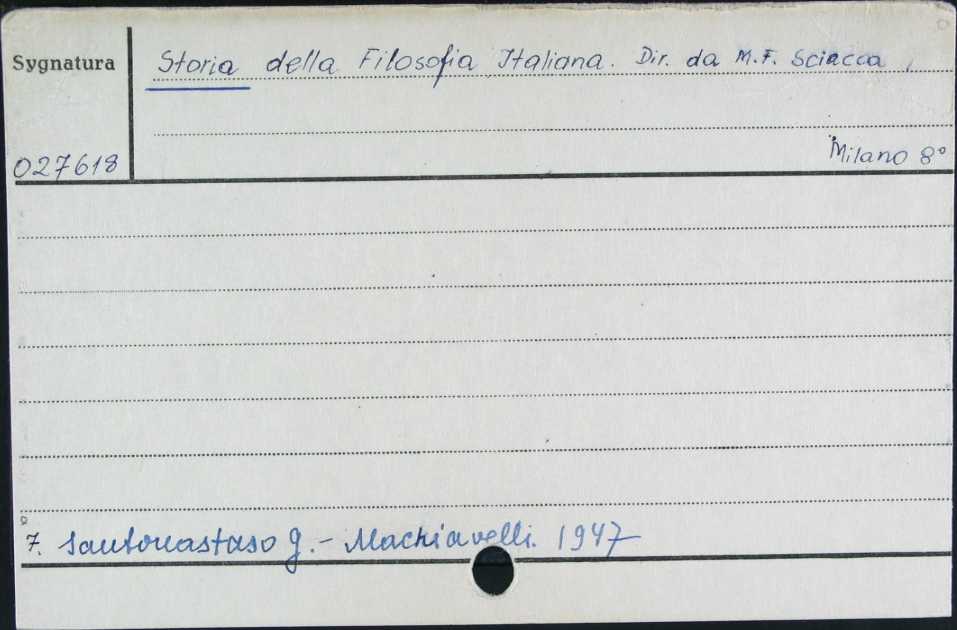 Sygnatura
Storia della Filosofia Italiana. Dir. da M.F. Sciacca,
027618
Milano 8°
7. Santonastaso G. - Machiavelli. 1947